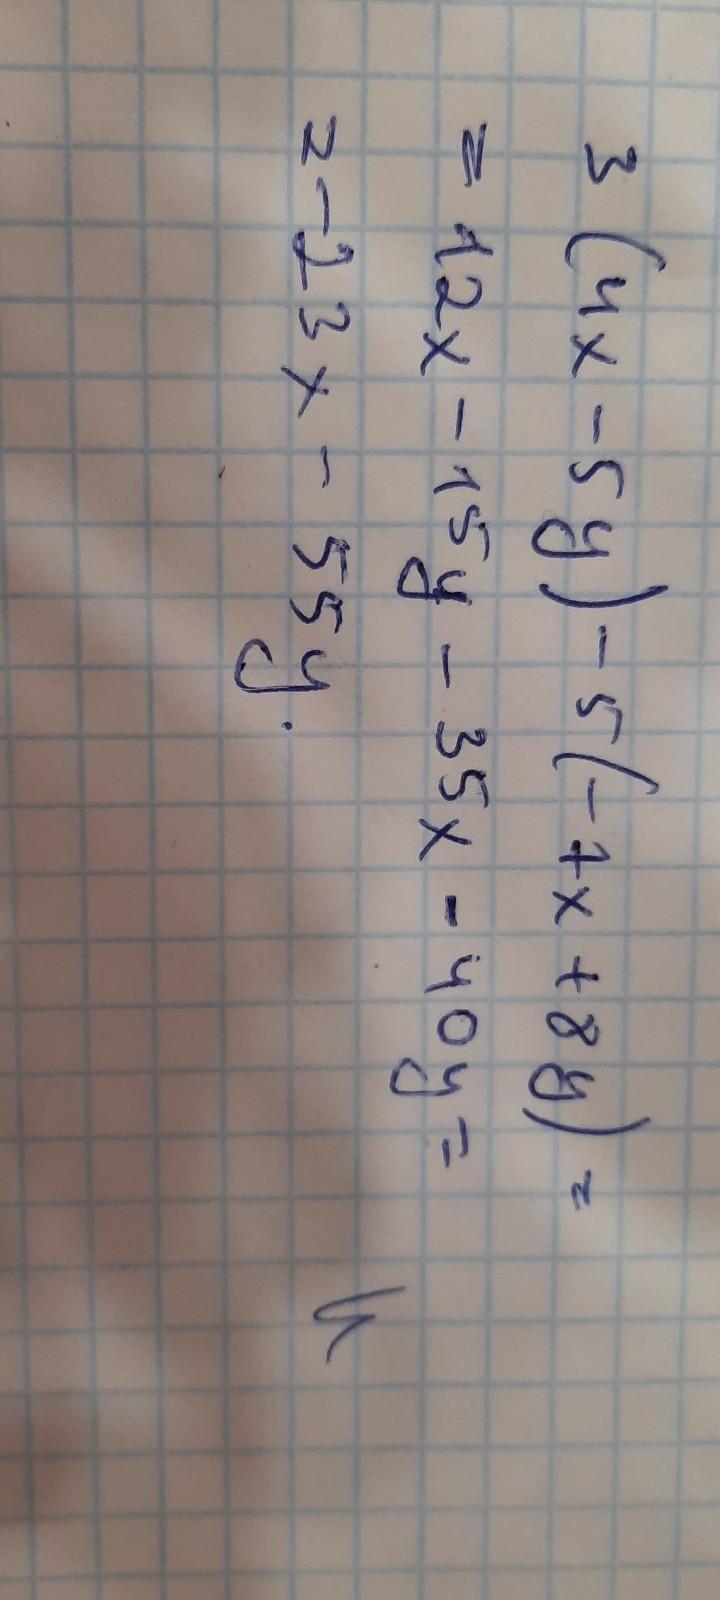 3(4x-5y)-5(-7x+8y)=
=12x-15y-35x-40y=
=-23x-55y.